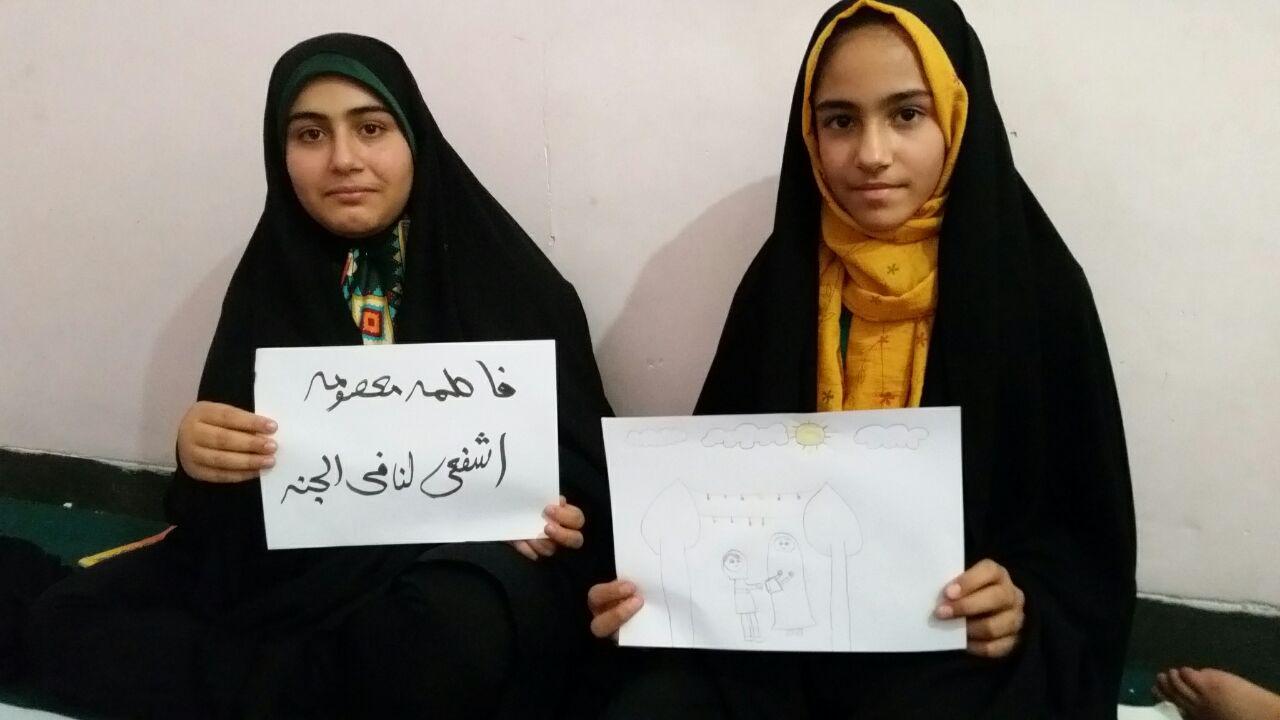 فاطمه معصومه
اشفعی لنا فی الجنه